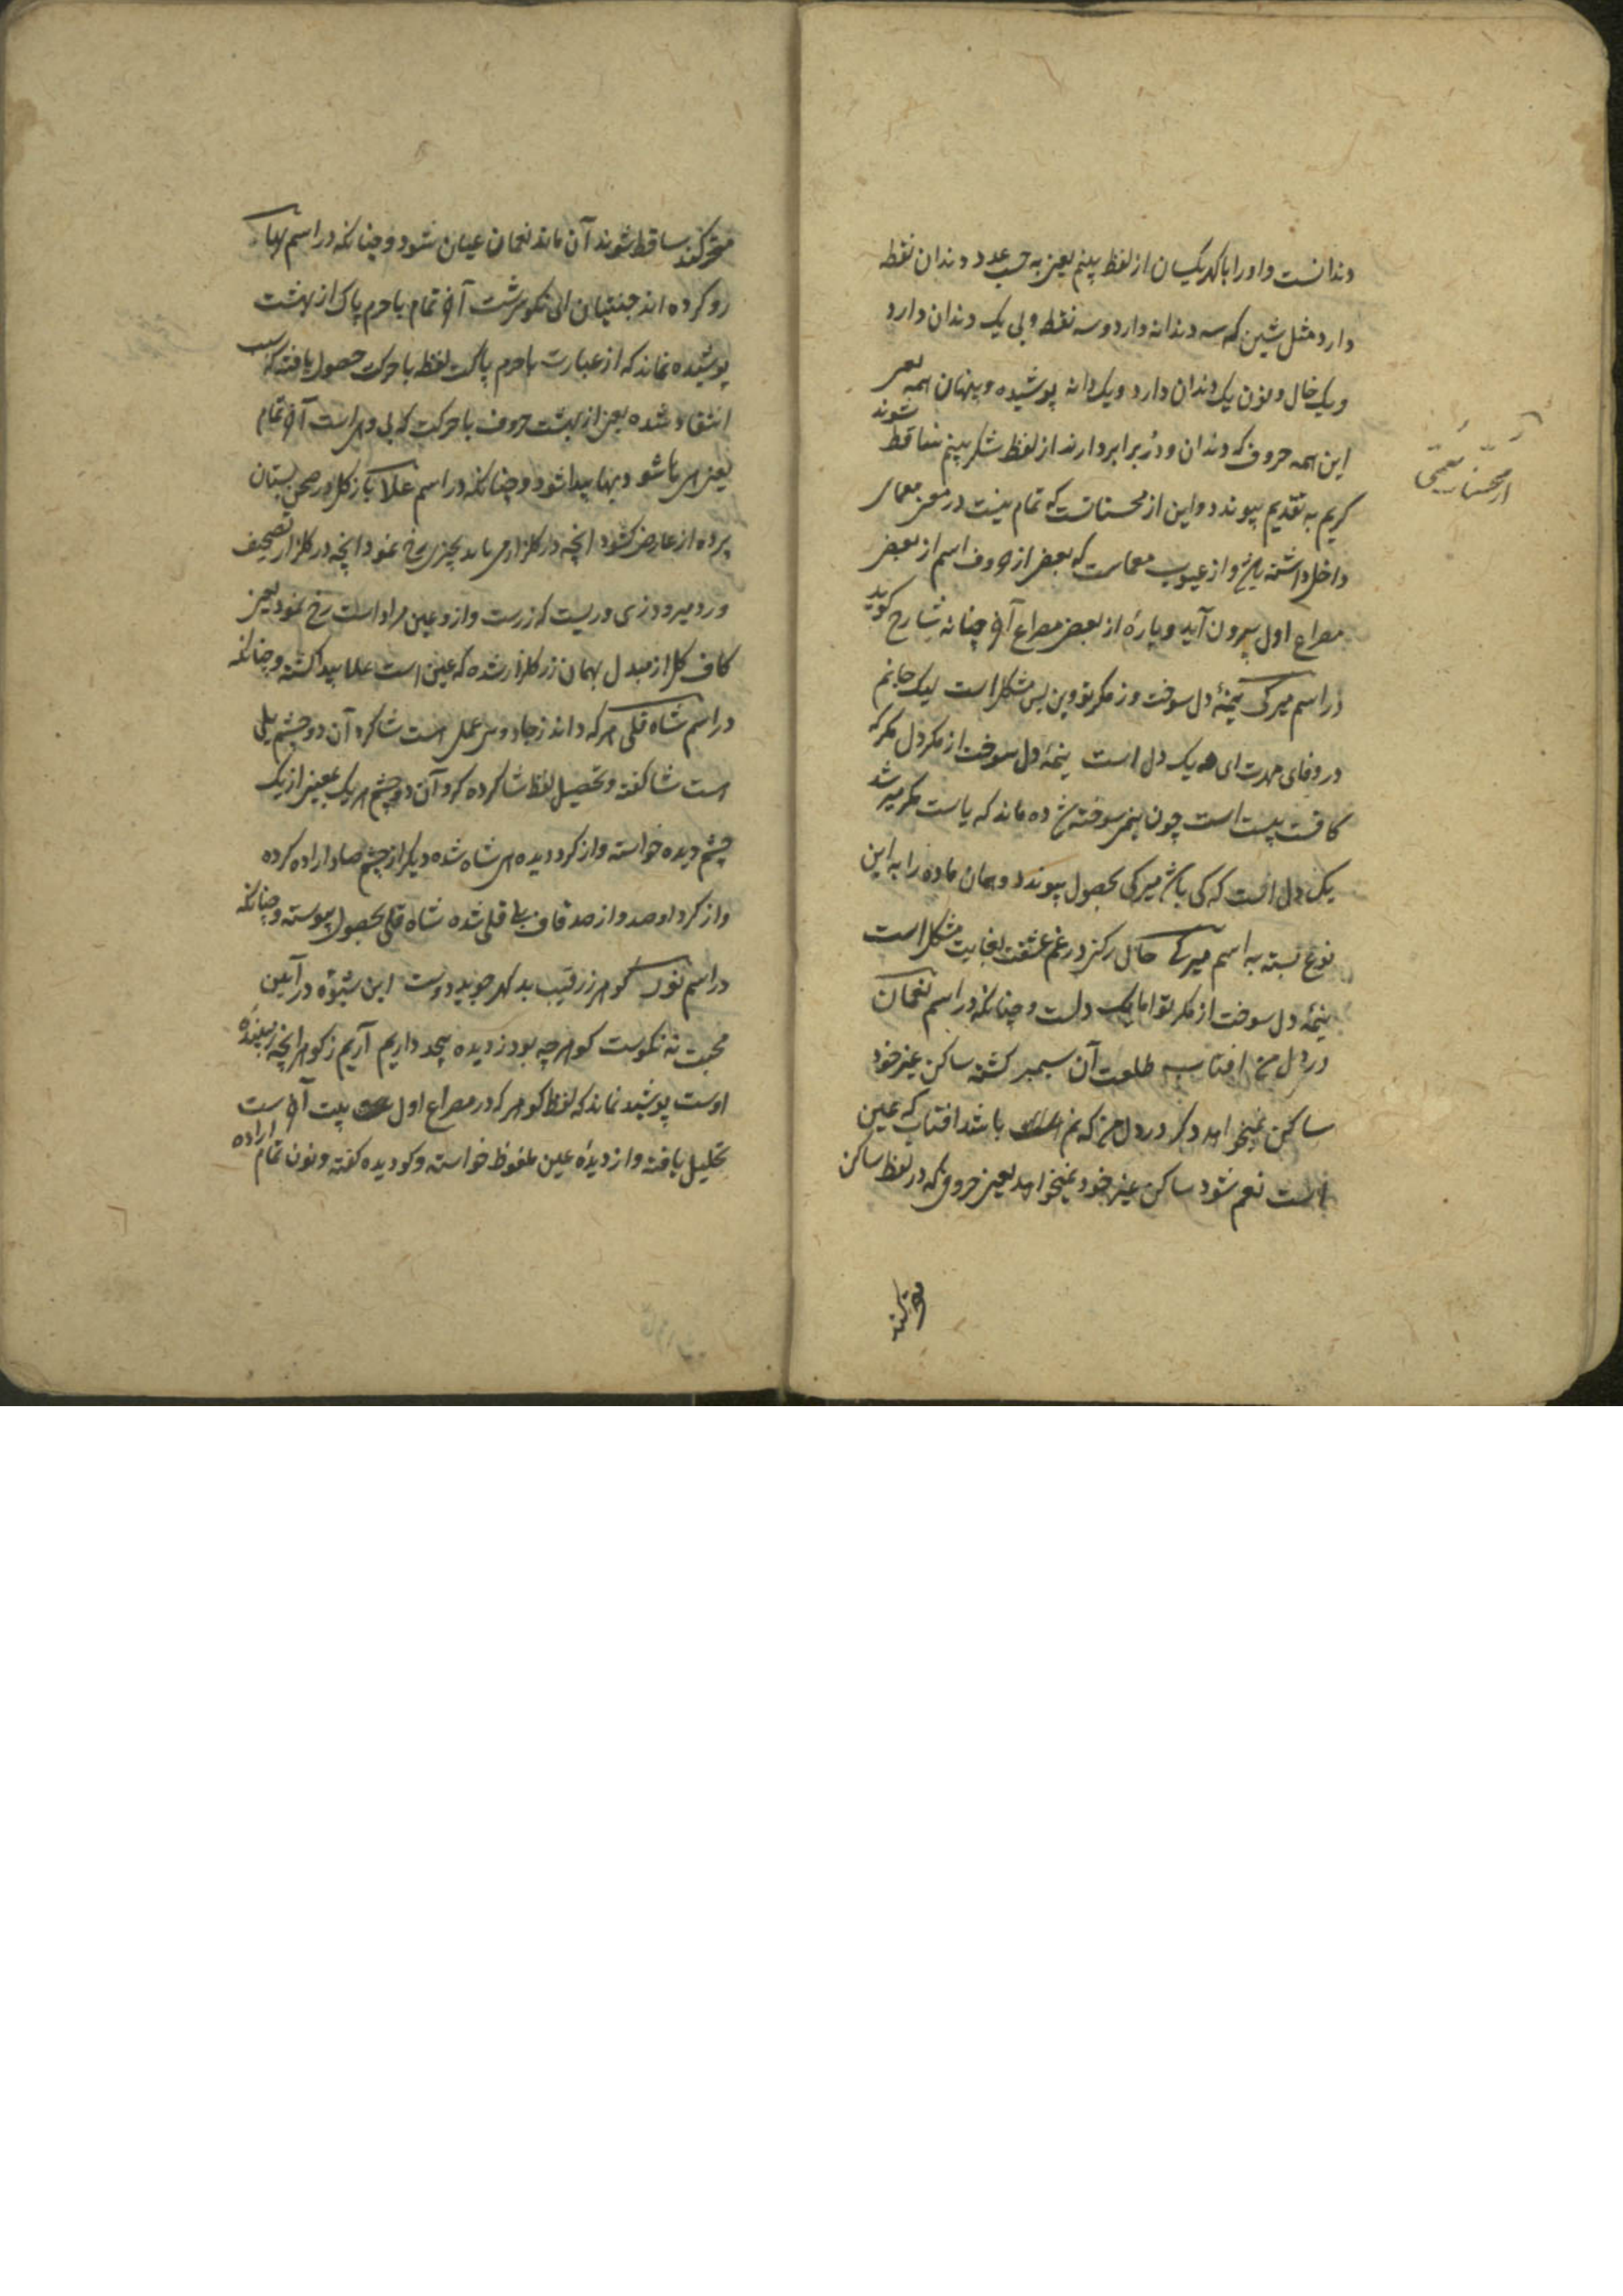 دندانست و او را با گهر یکسان از لفظ بینم یعنی به حسب عدد دندان نقطه
دارد مثل شین که سه دندانه دارد و سه نقطه و بی یک دندان دارد
و یک خال و نون یک دندان دارد و یک دانه پوشیده و پنهان همه یعنی
این همه حروف که دندان و در برابر دارند از لفظ شکر بینم ساقط شوند
کریم به تقدیم پیوندد و این از محسناتست که تمام بیت در معنی معمای
داخل داشته باشد و از عیوب معماست که بعضی از حروف اسم از بعض
مصراع اول بیرون آید و پارهٔ از بعض مصراع آخر چنانه شارح گوید
در اسم میرکی پنجهٔ دل سوخت وز مکر تو وین بس مشکل است لیک جانم
در وفای مهرت ای مه یک دل است پنجهٔ دل سوخت از مکر دل مکر که
کافت بیست است چون پنجم سوخته شده ماند که یاست مکر میر شد
یک دل است که کی باشد میرکی بحصول پیوندد و همان ماده را به این
نوع بسته به اسم میرکی حال رکنی در غم عشقت بغایت مشکل است
پنجهٔ دل سوخت از مکر تو اما یک دلست و چنانکه در اسم نعمان
در دل من افتاب طلعت آن سیمبر گشته ساکن غیر خود
ساکن نمیخواهد دگر در دل من که نم باشد افتاب که عین
است نعم شود ساکن غیر خود نمیخواهد یعنی حروفی که در لفظ ساکن
از محسنات معمی
متحرکند ساقط شوند آن ماند نعمان عیان شود و چنانکه در اسم بها
رو کرده اند جنتیان ای نکو سرشت آخر تمام با حرم پاک از بهشت
پوشیده نماند که از عبارت با حرم پاک لفظ با حرکت حصول یافته که سبب
انتقاد شده یعنی از بهشت حروف با حرکت که بی و هی است آخر تمام
یعنی هی با شود و بها پیدا شود و چنانکه در اسم علا باز گل در صحن بستان
پرده از عارض گشود انچه در گلزار می باید بچیزی رخ نمود انچه در گلزار تصحیف
ورد میرود زی وریست که زرست و از و عین مراد است رخ نمود یعنی
کاف گل از مبدل بهمان زر گلزار شده که عین است علا پیدا گشته و چنانکه
در اسم شاه قلی هر که داند ز جادوی عمل است شاکرد آن دو چشم یلی
است شا گفته و تحصیل لفظ شا کرده کرد آن دو چشم هر یک بمعنی از یک
چشم دیده خواسته و از کرد دیده هی شاه شده دیگر از چشم صاد اراده کرده
و از کرد او صد و از صد قاف بلی قلی شده شاه قلی بحصول پیوسته و چنانکه
در اسم نور گوهر ز رقیب بد گهر جوید دوست این شیوه در آیین
محبت نه نکوست گوهر چه بود ز دیده بیحد داریم آریم ز گوهر انچه زیبندهٔ
اوست پوشیده نماند که لفظ گوهر که در مصراع اول بیت آخر ست
تحلیل یافته و از دیدهٔ عین ملفوظ خواسته و کو دیده گفته و نون تمام اراده